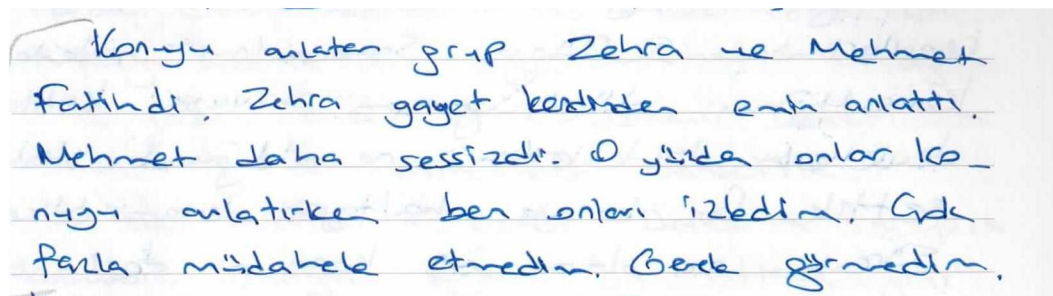 Konuyu anlatan grup Zehra ve Mehmet
Fatihdi. Zehra gayet kendinden emin anlattı.
Mehmet daha sessizdi. O yüzden onlar ko-
nuyu anlatırken ben onları izledim. Çok
fazla müdahele etmedim. Gerek görmedim.